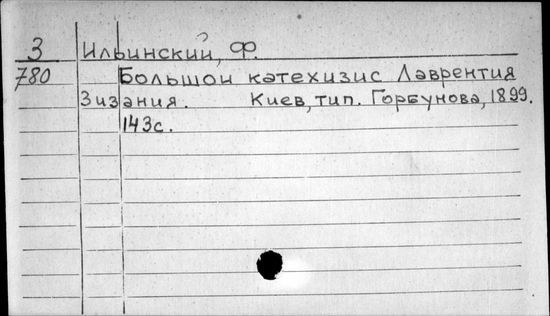 З Ильинский, Ф.
780 Большой катехизис Лаврентия
Зизания. Киев, тип. Горбунова, 1899.
143с.